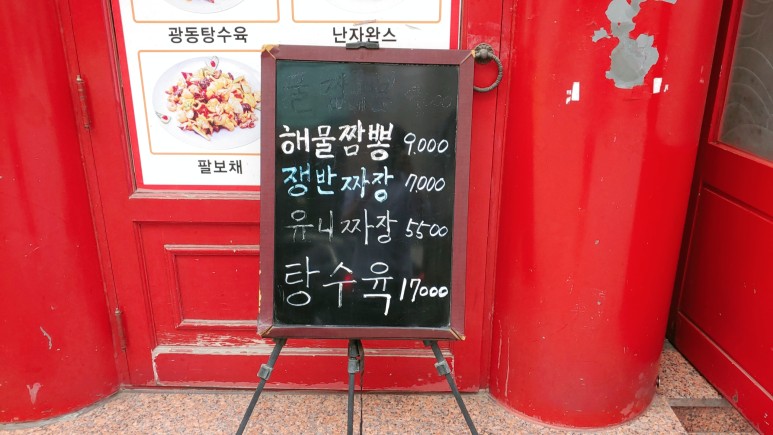 광동탕수육
난자완스
팔보채
해물짬뽕 9,000
쟁반짜장 7,000
유니짜장 5500
탕수육 17000